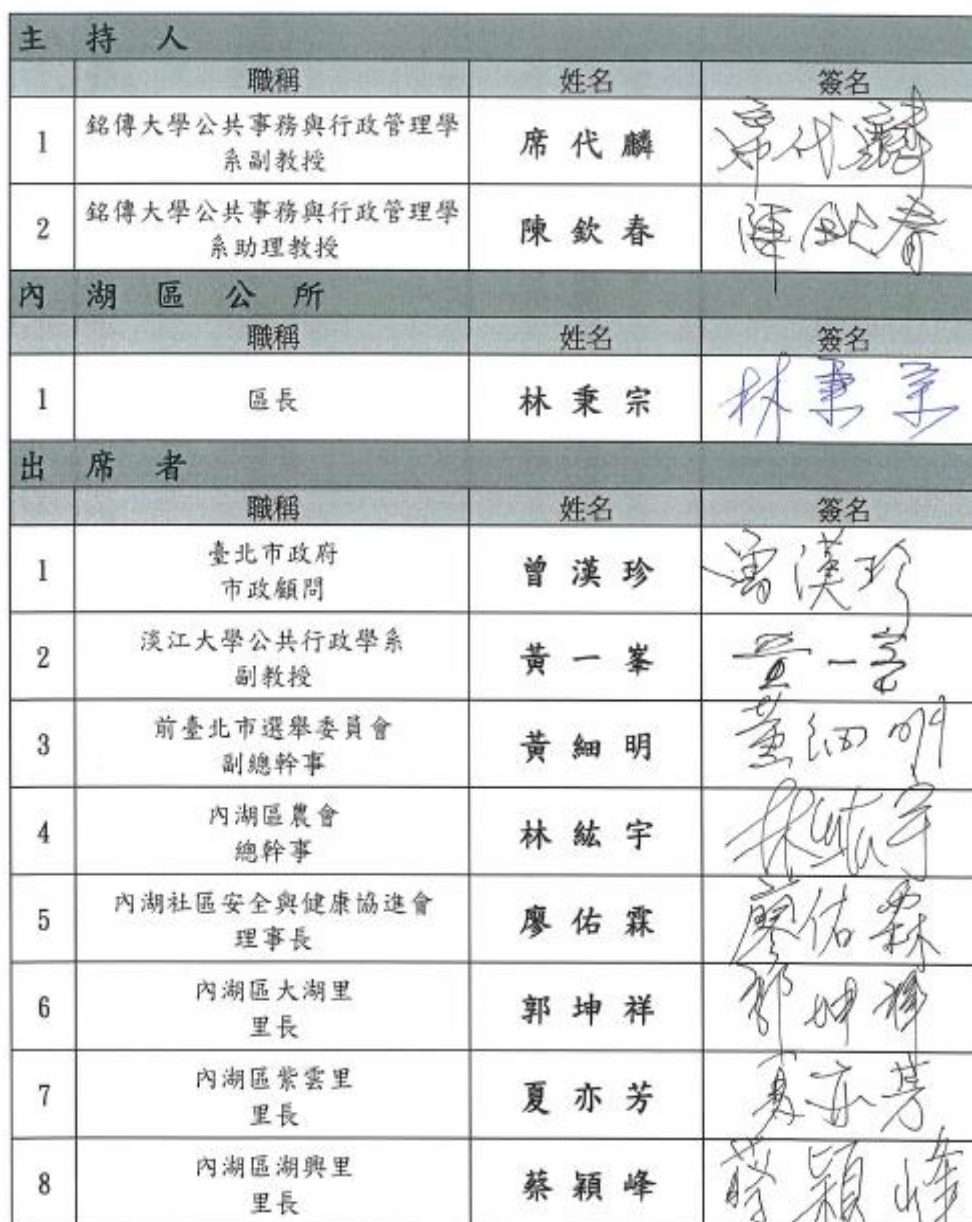 主持人
職稱 姓名 簽名
1 銘傳大學公共事務與行政管理學
系副教授 席代麟 席代麟
2 銘傳大學公共事務與行政管理學
系助理教授 陳欽春 陳欽春
內湖區公所
職稱 姓名 簽名
1 區長 林秉宗 林秉宗
出席者
職稱 姓名 簽名
1 臺北市政府
市政顧問 曾漢珍 曾漢珍
2 淡江大學公共行政學系
副教授 黃一峯 黃一峯
3 前臺北市選舉委員會
副總幹事 黃細明 黃細明
4 內湖區農會
總幹事 林紘宇 林紘宇
5 內湖社區安全與健康協進會
理事長 廖佑霖 廖佑霖
6 內湖區大湖里
里長 郭坤祥 郭坤祥
7 內湖區紫雲里
里長 夏亦芳 夏亦芳
8 內湖區湖興里
里長 蔡穎峰 蔡穎峰